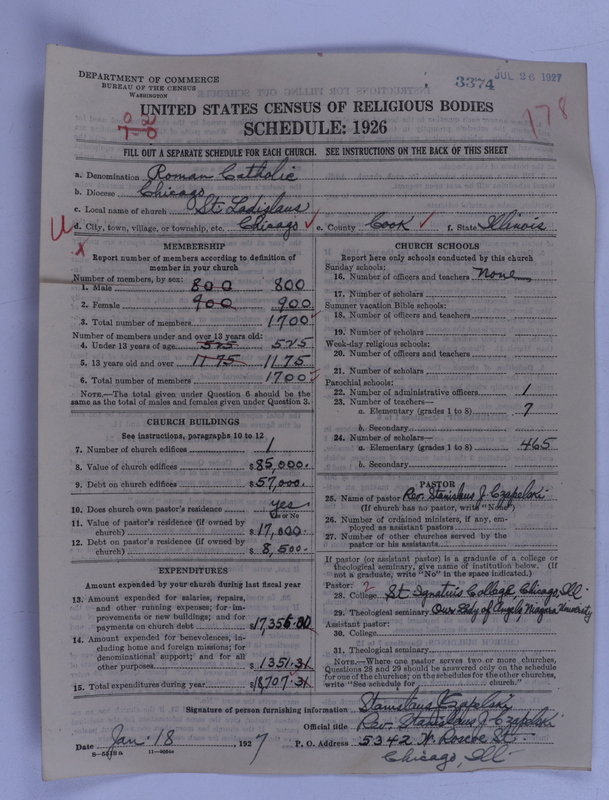 DEPARTMENT OF COMMERCE
BUREAU OF THE CENSUS
WASHINGTON
3374 JUL 26 1927
178
UNITED STATES CENSUS OF RELIGIOUS BODIES
SCHEDULE: 1926
FILL OUT A SEPARATE SCHEDULE FOR EACH CHURCH. SEE INSTRUCTIONS ON THE BACK OF THIS SHEET
a. Denomination Roman Catholic
b. Diocese Chicago
c. Local name of church St Ladislaus
d. City, town, village, or township, etc. Chicago e. County Cook f. State Illinois
MEMBERSHIP
Report number of members according to definition of
member in your church
Number of members, by sex:
1. Male 800 800
2. Female 900 900
3. Total number of members 1700
Number of members under and over 13 years old:
4. Under 13 years of age 525 525
5. 13 years old and over 1175 1175
6. Total number of members 1700
NOTE.—The total given under Question 6 should be the
same as the total of males and females given under Question 3.
CHURCH BUILDINGS
See instructions, paragraphs 10 to 12
7. Number of church edifices 1
8. Value of church edifices $85,000.
9. Debt on church edifices $57,000.
10. Does church own pastor's residence yes
Yes or No
11. Value of pastor's residence (if owned by
church) $17,000.
12. Debt on pastor's residence (if owned by
church) $8,500.
EXPENDITURES
Amount expended by your church during last fiscal year
13. Amount expended for salaries, repairs,
and other running expenses; for im-
provements or new buildings; and for
payments on church debt 17,356.00
14. Amount expended for benevolences, in-
cluding home and foreign missions; for
denominational support; and for all
other purposes $1351.31
15. Total expenditures during year $18,707.31
CHURCH SCHOOLS
Report here only schools conducted by this church
Sunday schools:
16. Number of officers and teachers None
17. Number of scholars
Summer vacation Bible schools:
18. Number of officers and teachers
19. Number of scholars
Week-day religious schools:
20. Number of officers and teachers
21. Number of scholars
Parochial schools:
22. Number of administrative officers 1
23. Number of teachers—
a. Elementary (grades 1 to 8) 7
b. Secondary
24. Number of scholars—
a. Elementary (grades 1 to 8) 465
b. Secondary
PASTOR
25. Name of pastor Rev. Stanislaus J. Czapelski
(If church has no pastor, write "None")
26. Number of ordained ministers, if any, em-
ployed as assistant pastors
27. Number of other churches served by the
pastor or his assistants
If pastor (or assistant pastor) is a graduate of a college or
theological seminary, give name of institution below. (If
not a graduate, write "No" in the space indicated.)
Pastor: 2
28. College St Ignatius College, Chicago, Ill
29. Theological seminary Our Lady of Angels, Niagara University
Assistant pastor:
30. College
31. Theological seminary
NOTE.—Where one pastor serves two or more churches,
Questions 28 and 29 should be answered only on the schedule
for one of the churches; on the schedules for the other churches,
write "See schedule for church."
Signature of person furnishing information Stanislaus Czapelski
Official title Rev. Stanislaus J. Czapelski
Date Jan. 18, 1927 P. O. Address 5342 W. Roscoe St.
Chicago, Ill
8-5519a 11-9084a